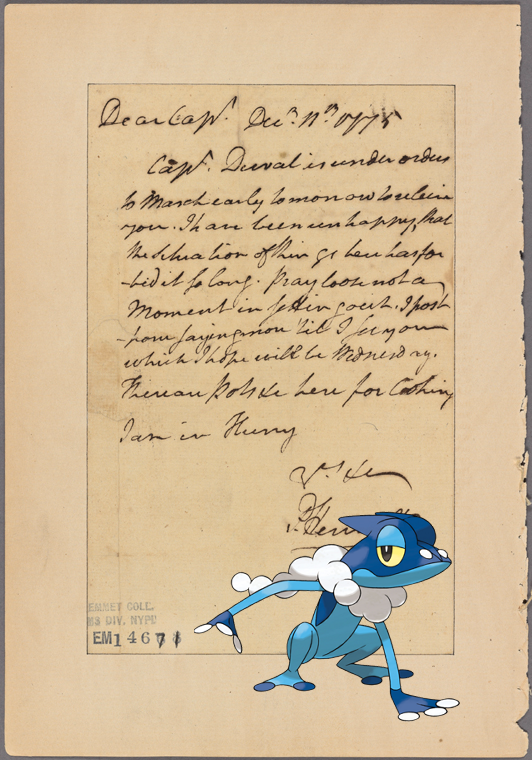 Dear Capt. Decr. 11th 1775
Capt. Duval is under orders
to March early tomorrow to releive
you. I have been unhappy, that
the situation of things here has for
-bid it so long. Pray loose not a
Moment in setting out. I post
-pone saying more 'til I see you
which I hope will be Wednesday.
There are Pots &c here for Cooking
I am in Hurry
Yrs. &c
EMMET COLL.
MS DIV. NYPL
EM14671